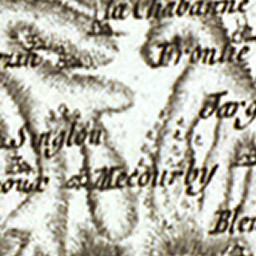 la Chabanne
Fronlie
Targ
Singlou
Mecourby
Blen